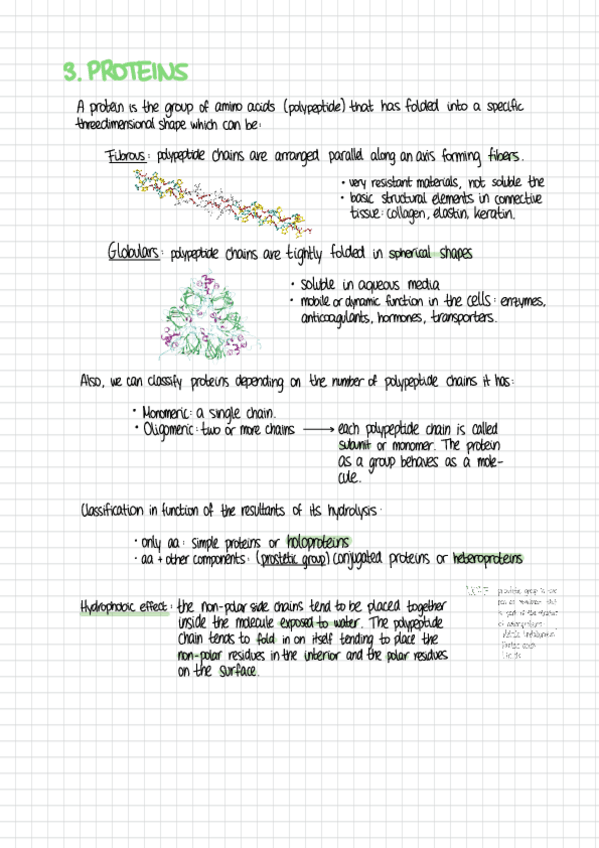 3. PROTEINS
A protein is the group of amino acids (polypeptide) that has folded into a specific
threedimensional shape which can be:
Fibrous: polypeptide chains are arranged parallel along an axis forming fibers.
• very resistant materials, not soluble the
• basic structural elements in connective
tissue: collagen, elastin, keratin.
Globulars: polypeptide chains are tightly folded in spherical shapes
• soluble in aqueous media
• mobile or dynamic function in the cells: enzymes,
anticoagulants, hormones, transporters.
Also, we can classify proteins depending on the number of polypeptide chains it has:
• Monomeric: a single chain.
• Oligomeric: two or more chains → each polypeptide chain is called
subunit or monomer. The protein
as a group behaves as a mole-
cule.
Classification in function of the resultants of its hydrolysis:
• only aa: simple proteins or holoproteins
• aa + other components: (prostetic group) conjugated proteins or heteroproteins
Hydrophobic effect: the non-polar side chains tend to be placed together
inside the molecule exposed to water. The polypeptide
chain tends to fold in on itself tending to place the
non-polar residues in the interior and the polar residues
on the surface.